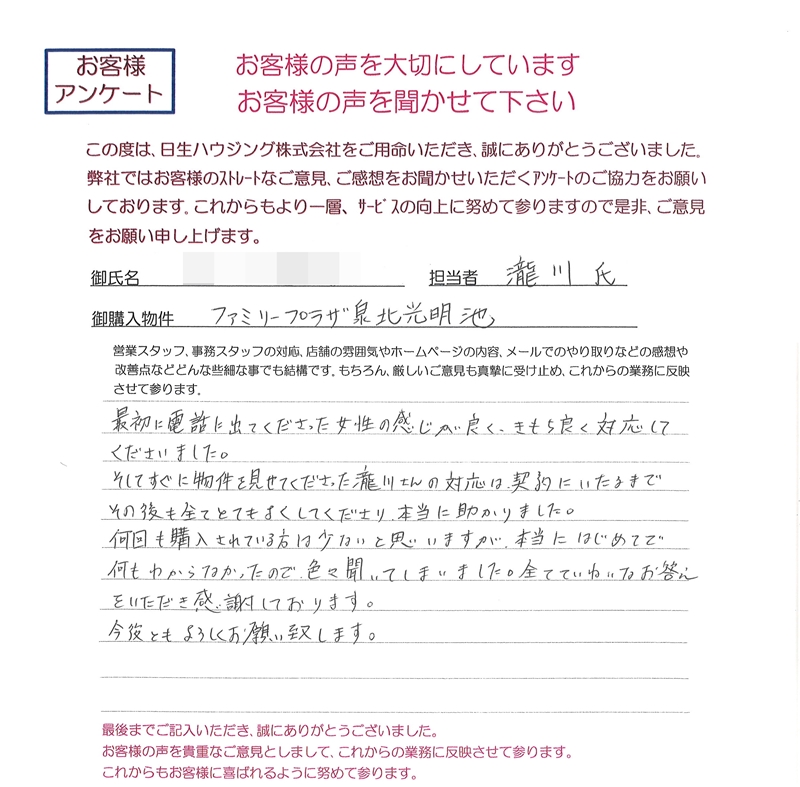 お客様
アンケート
お客様の声を大切にしています
お客様の声を聞かせて下さい
この度は、日生ハウジング株式会社をご用命いただき、誠にありがとうございました。
弊社ではお客様のｽﾄﾚｰﾄなご意見、ご感想をお聞かせいただくｱﾝｹｰﾄのご協力をお願い
しております。これからもより一層、ｻｰﾋﾞｽの向上に努めて参りますので是非、ご意見
をお願い申し上げます。
御氏名 担当者 瀧川氏
御購入物件 ファミリープラザ泉北光明池
営業スタッフ、事務スタッフの対応、店舗の雰囲気やホームページの内容、メールでのやり取りなどの感想や
改善点などどんな些細な事でも結構です。もちろん、厳しいご意見も真摯に受け止め、これからの業務に反映
させて参ります。
最初に電話に出てくださった女性の感じが良く、きもち良く対応して
くださいました。
そしてすぐに物件を見せてくださった瀧川さんの対応は、契約にいたるまで
その後も全てとてもよくしてくださり、本当に助かりました。
何回も購入されている方は少ないと思いますが、本当にはじめてで
何もわからなかったので、色々聞いてしまいました。全てていねいなお答え
をいただき感謝しております。
今後ともよろしくお願い致します。
最後までご記入いただき、誠にありがとうございました。
お客様の声を貴重なご意見としまして、これからの業務に反映させて参ります。
これからもお客様に喜ばれるように努めて参ります。